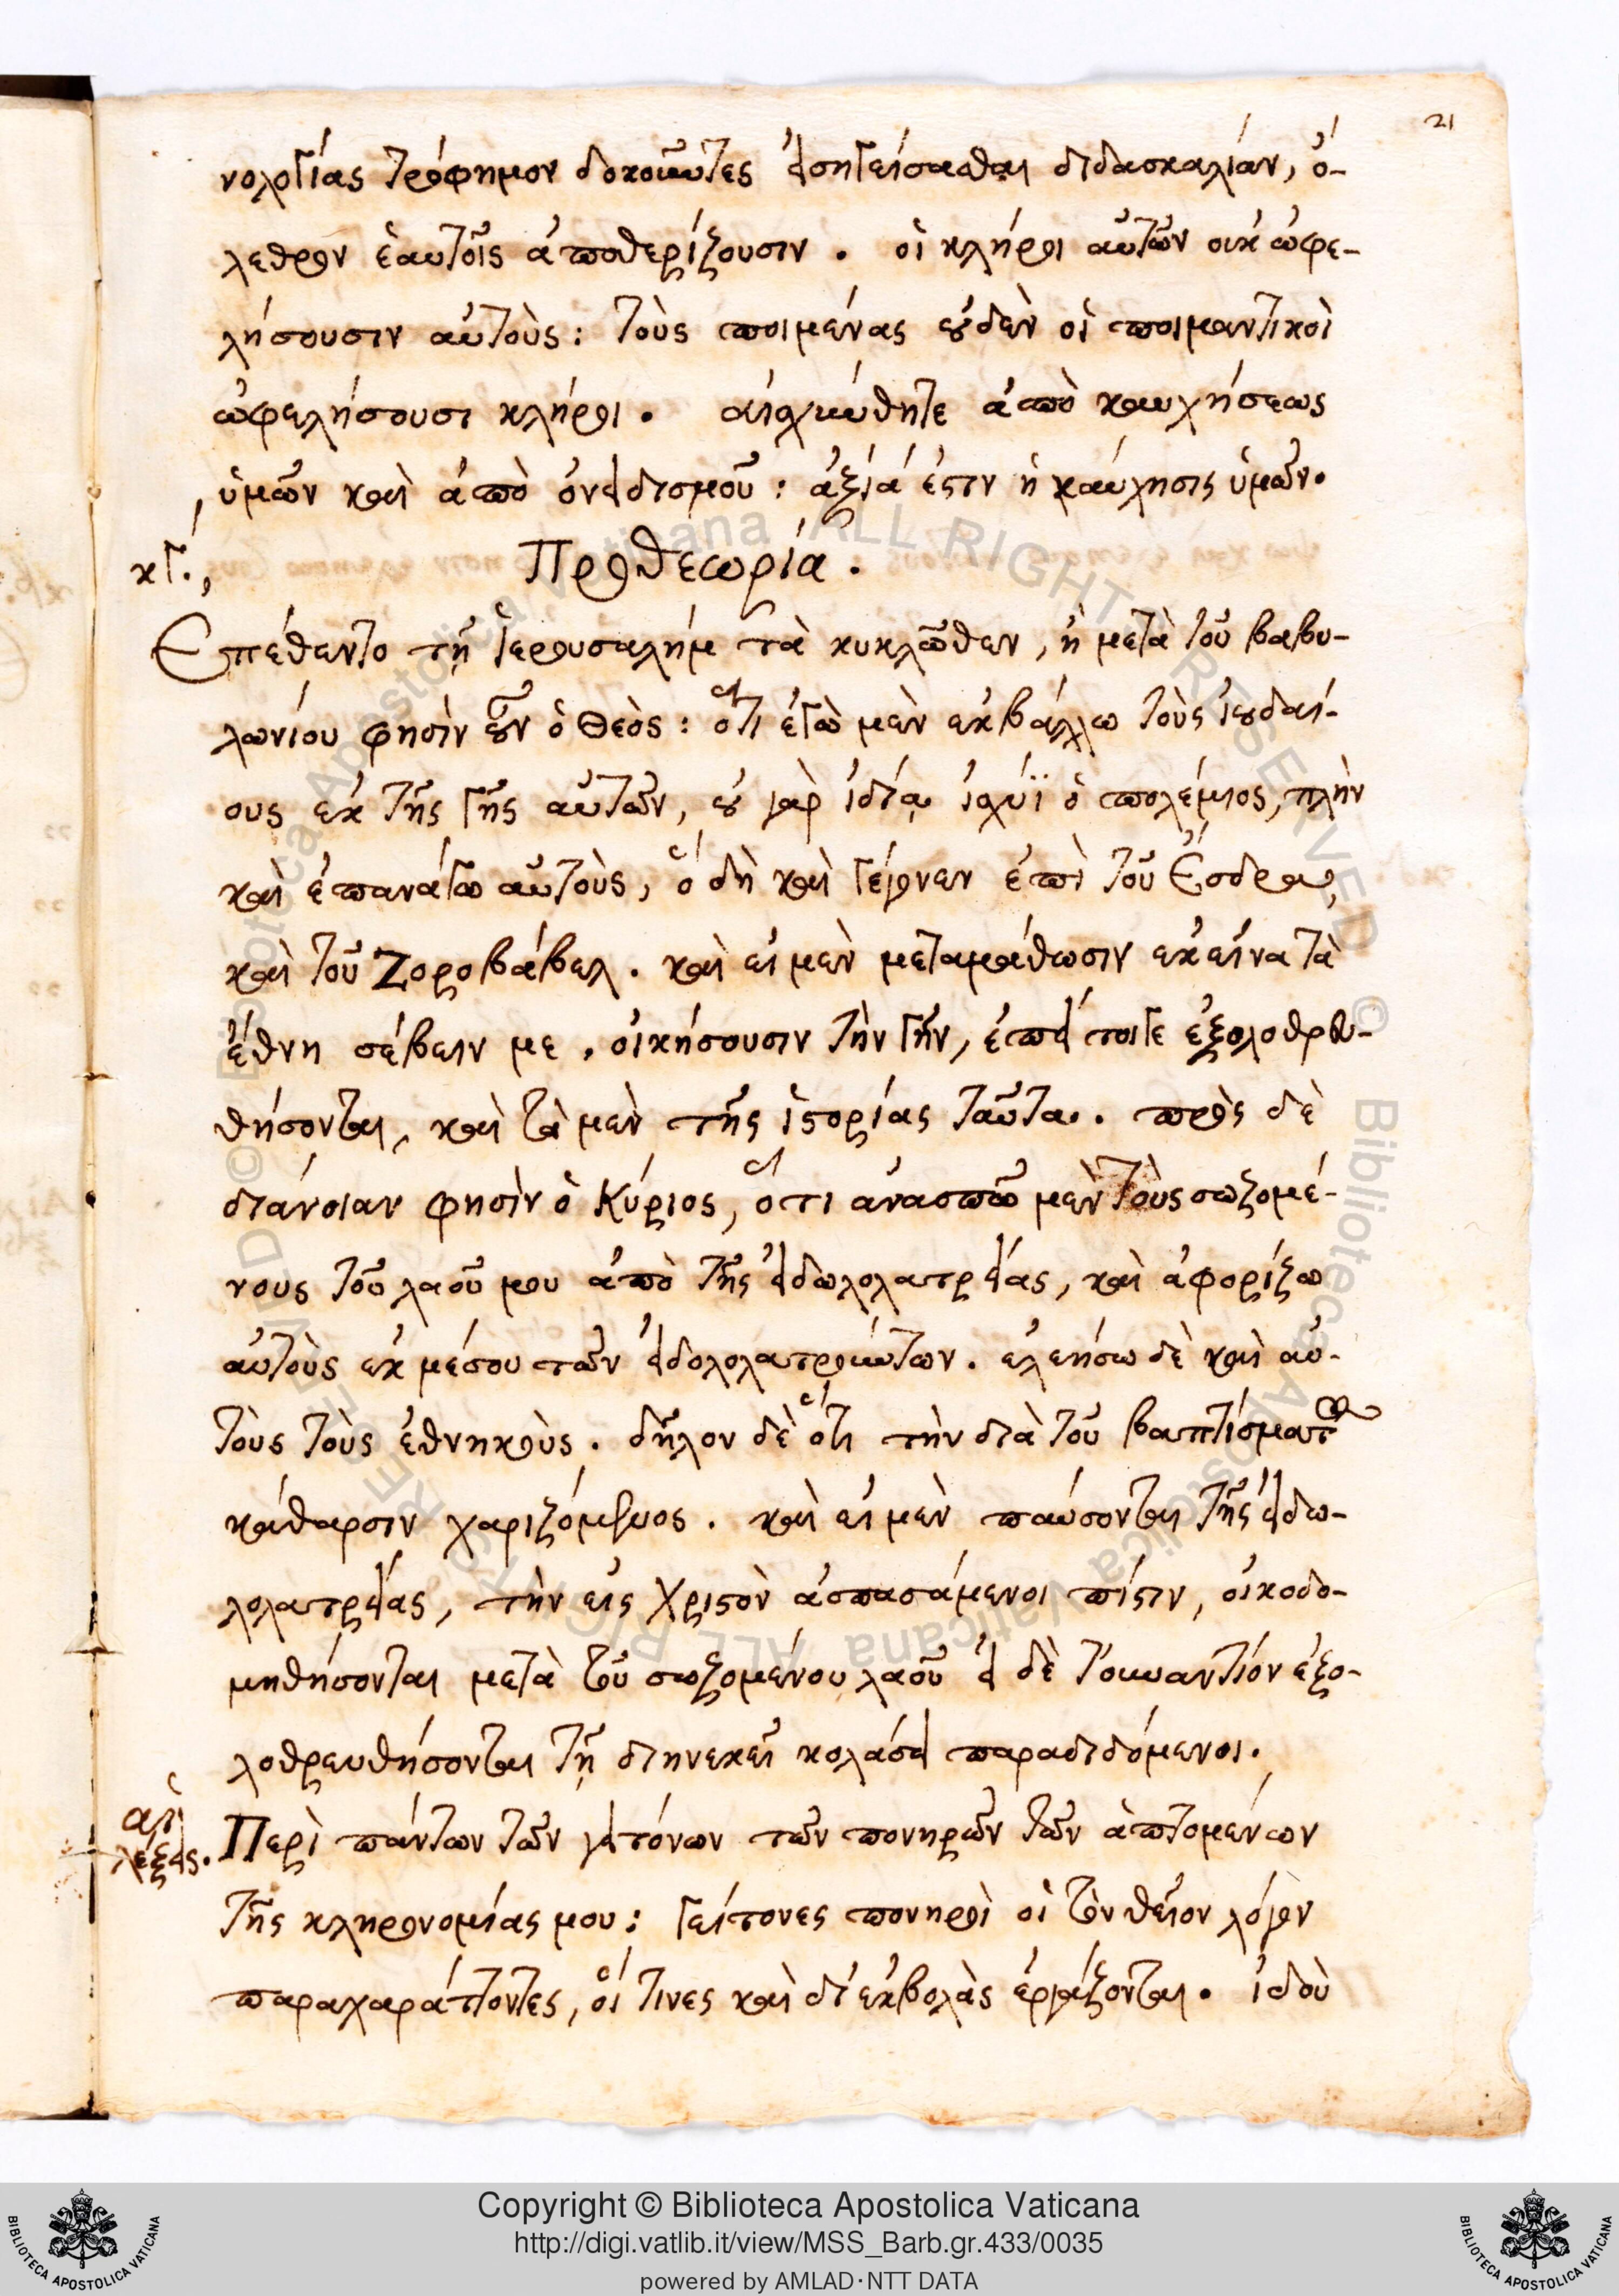 21
νολογίας τρόφημον δοκοῦντες εἰσηγείσασθαι διδασκαλίαν, ὄ-
λεθρον ἑαυτοῖς ἀποθερίζουσιν . οἱ κλῆροι αὐτῶν οὐκ ὠφε-
λήσουσιν αὐτοὺς : τοὺς ποιμένας οὐδὲν οἱ ποιμαντικοὶ
ὠφελήσουσι κλήροι . αἰσχύνθητε ἀπὸ καυχήσεως
ὑμῶν καὶ ἀπὸ ὀνειδισμοῦ : ἀξία ἐστιν ἡ καύχησις ὑμῶν.
κγ. Προθεωρία .
Επέθεντο τῇ ἱερουσαλήμ τὰ κυκλῶθεν, ἢ μετὰ τοῦ βαβυ-
λωνίου φησὶν οὖν ὁ Θεὸς : ὅτι ἐγὼ μὲν ἐκβάλλω τοὺς ἰουδαί-
ους ἐκ τῆς γῆς αὐτῶν, οὐ γὰρ ἰδίᾳ ἰσχύϊ ὁ πολέμιος, πλὴν
καὶ ἐπανάγω αὐτοὺς, ὅ δὴ καὶ γέγονεν ἐπὶ τοῦ Ἔσδρα,
καὶ τοῦ Ζοροβάβελ . καὶ εἰ μὲν μεταμάθωσιν ἐκεῖνα τὰ
ἔθνη σέβειν με , οἰκήσουσιν τὴν γῆν, ἐπεί τοιγε ἐξολοθρευ-
θήσονται, καὶ τὰ μὲν τῆς ἱστορίας ταῦτα . πρὸς δὲ
διάνοιαν φησὶν ὁ Κύριος, ὅτι ἀνασπῶ μὲν τοὺς σωζομέ-
νους τοῦ λαοῦ μου ἀπὸ τῆς εἰδωλολατρείας, καὶ ἀφορίζω
αὐτοὺς ἐκ μέσου τῶν εἰδολολατρούντων . ἐλεήσω δὲ καὶ αὐ-
τοὺς τοὺς ἐθνηκοὺς . δῆλον δὲ ὅτι τὴν διὰ τοῦ βαπτίσματος
κάθαρσιν χαριζόμενος . καὶ εἰ μὲν παύσονται τῆς εἰδω-
λολατρείας, τὴν εἰς Χριστὸν ἀσπασάμενοι πίστιν, οἰκοδο-
μηθήσονται μετὰ τοῦ σωζομένου λαοῦ εἰ δὲ τοὐναντίον ἐξο-
λοθρευθήσονται τῇ διηνεκεῖ κολάσει παραδιδόμενοι .
αἱ λέξεις. Περὶ πάντων τῶν γειτόνων τῶν πονηρῶν τῶν ἁπτομένων
τῆς κληρονομίας μου : γείτονες πονηροὶ οἱ τὸν θεῖον λόγον
παραχαράττοντες, οἵ τινες καὶ δι' ἐκβολὰς ἐργάζονται . ἰδοὺ
Copyright © Biblioteca Apostolica Vaticana
http://digi.vatlib.it/view/MSS_Barb.gr.433/0035
powered by AMLAD·NTT DATA